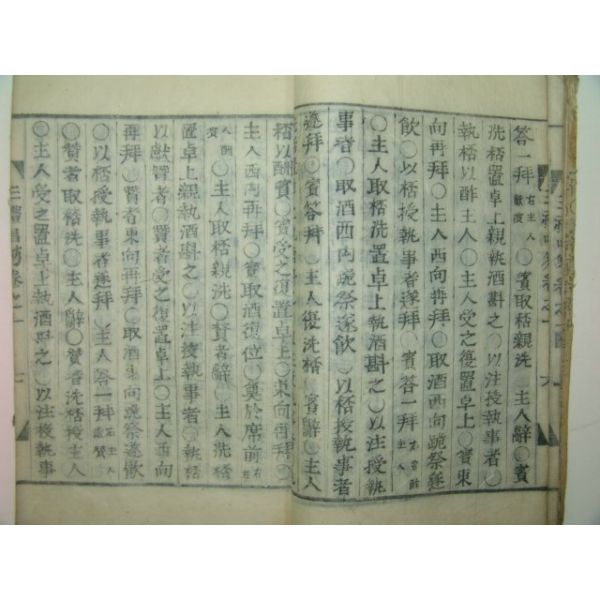 答一拜 右主人獻賓 ○賓取桮親洗○主人辭○賓
洗桮置卓上親執酒斟之○以注授執事者○
執桮以酢主人○主人受之復置卓上○賓東
向再拜○主人西向再拜○取酒西向跪祭遂
飮○以桮授執事者遂拜○賓答一拜 右賓酢主人
○主人取桮洗置卓上執酒斟之○以注授執
事者○取酒西向跪祭遂飮○以桮授執事者
遂拜○賓答拜○主人復洗桮○賓辭○主人
桮以酬賓○賓受之復置卓上○東向再拜○
主人西向再拜○賓取酒復位○奠於席前 右主
人酬賓 ○主人取桮親洗○贊者辭○主人洗桮
置卓上親執酒斟之○以注授執事者○執桮
以獻贊者○贊者受之復置卓上○主人西向
再拜○贊者東向再拜○取酒東向跪祭遂飮
○以桮授執事者遂拜○主人答一拜 右主人獻贊
○贊者取桮洗○主人辭○贊者洗桮授主人
○主人受之置卓上執酒斟之○以注授執事